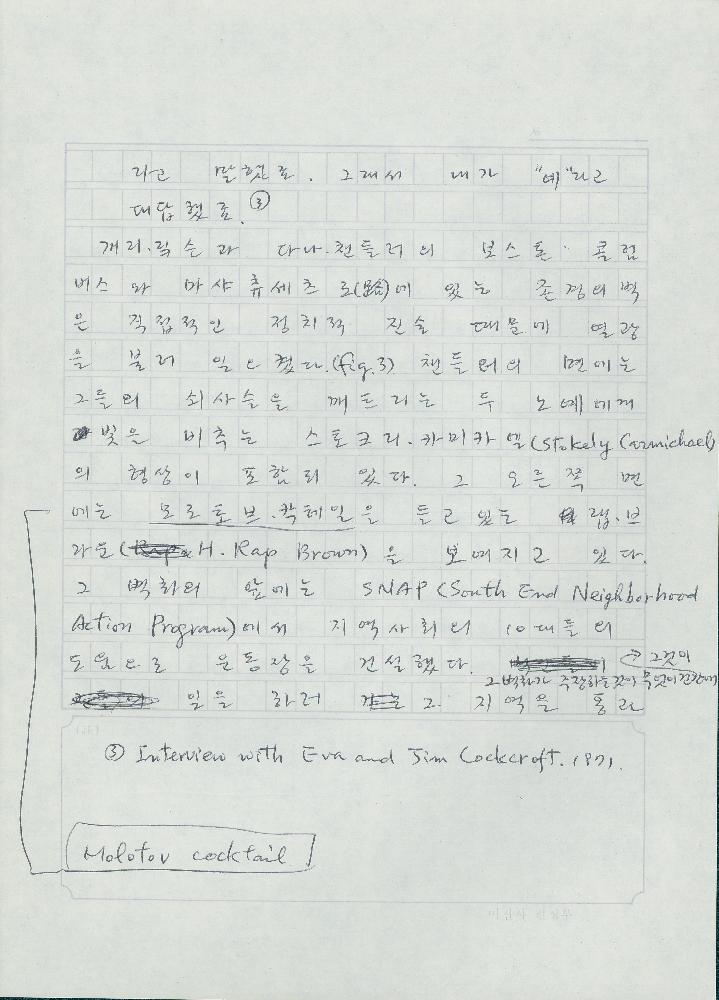 라고 말했죠. 그래서 내가 "예"라고
대답했죠. ③
개리·릭슨과 다나·챈들러의 보스톤·콜럼
버스와 마샤츄세츠 로(路)에 있는 존경의 벽
은 직접적인 정치적 진술 때문에 열광
을 불러 일으켰다.(fig.3) 챈들러의 면에는
그들의 쇠사슬을 깨트리는 두 노예에게
빛을 비추는 스토크리·카미카엘(Stokely Carmichael)
의 형상이 포함되 있다. 그 오른쪽 면
에는 모로토브·칵테일을 들고 있는 랩·브
라운(H. Rap Brown)을 보여지고 있다.
그 벽화의 앞에는 SNAP(South End Neighborhood
Action Program)에서 지역사회의 10대들의
도움으로 운동장을 건설했다. → 그것이
그 벽화가 주장하는 것이 무엇이건간에
일을 하러 그 지역을 통과
③ Interview with Eva and Jim Cockcroft. 1971.
Molotov cocktail